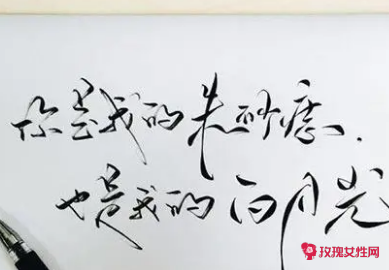 你是我的朱砂痣、
也是我的白月光
玫瑰女性网